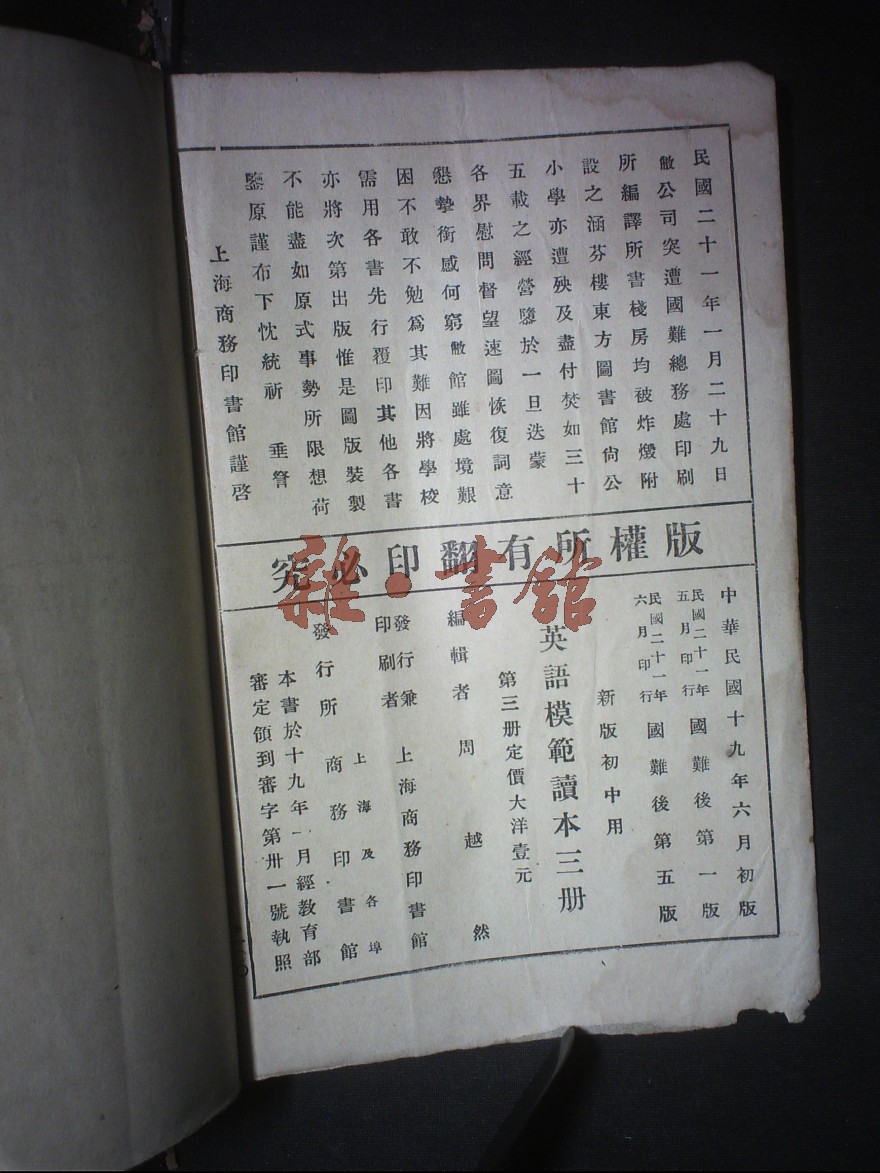 民國二十一年一月二十九日
敝公司突遭國難總務處印刷
所編譯所書棧房均被炸燬附
設之涵芬樓東方圖書館尙公
小學亦遭殃及盡付焚如三十
五載之經營隳於一旦迭蒙
各界慰問督望速圖恢復詞意
懇摯銜感何窮敝館雖處境艱
困不敢不勉爲其難因將學校
需用各書先行覆印其他各書
亦將次第出版惟是圖版裝製
不能盡如原式事勢所限想荷
鑒原謹布下忱統祈 垂詧
上海商務印書館謹啓
版權所有翻印必究
中華民國十九年六月初版
民國二十一年五月印行 國難後第一版
民國二十一年六月印行 國難後第五版
新版初中用
英語模範讀本三册
第三册定價大洋壹元
編輯者 周越然
發行兼印刷者 上海商務印書館
發行所 上海及各埠 商務印書館
本書於十九年一月經教育部
審定領到審字第卅一號執照
雜·書館